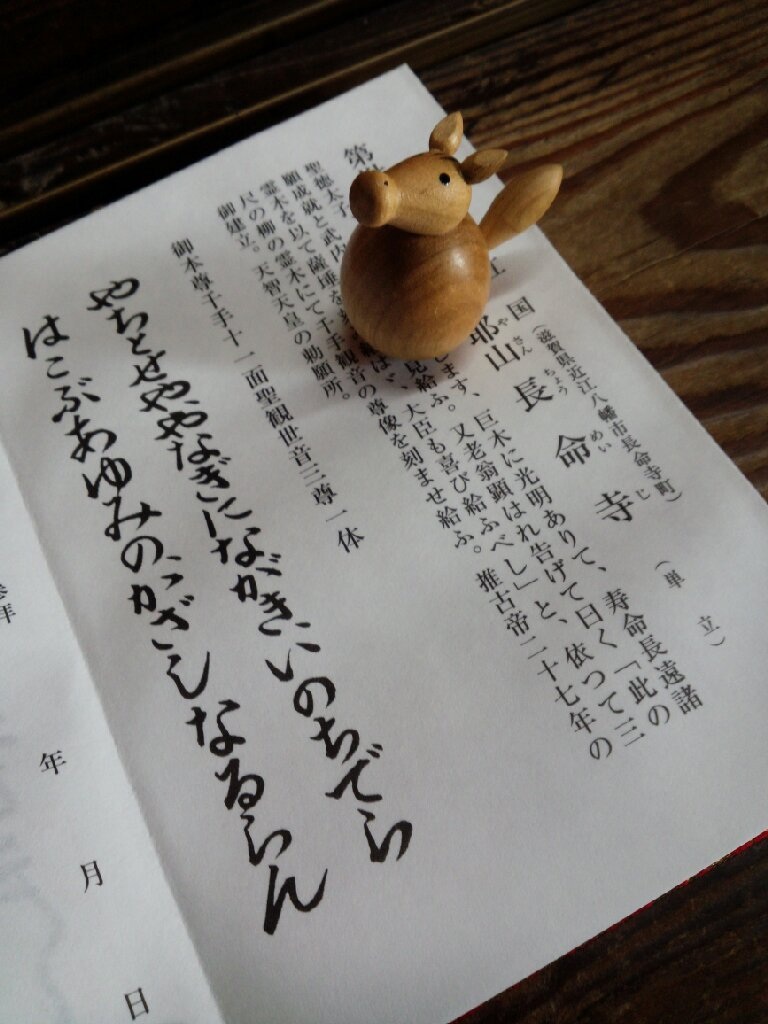 第
国（滋賀県近江八幡市長命寺町）
耶山長命寺（単立）
やさんちょうめいじ
聖徳太子、武内
します、巨木に光明ありて、寿命長遠諸
願成就と
見給ふ。又老翁顕はれ告げて曰く「此の
霊木を以て薩埵を
大臣も喜び給ふべし」と、依つて三
尺の柳の霊木にて千手観音の尊像を刻ませ給ふ。推古帝二十七年の
御建立。天智天皇の勅願所。
御本尊千手十一面聖観世音三尊一体
やちとせややなぎにながきいのちでら
はこぶあゆみのかざしなるらん
年　月　日